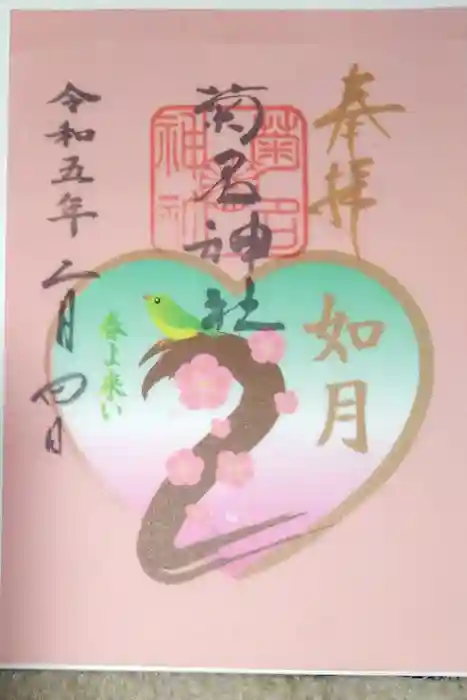 奉拝
如月
菊名神社
菊名
神社
春よ来い
令和五年二月四日